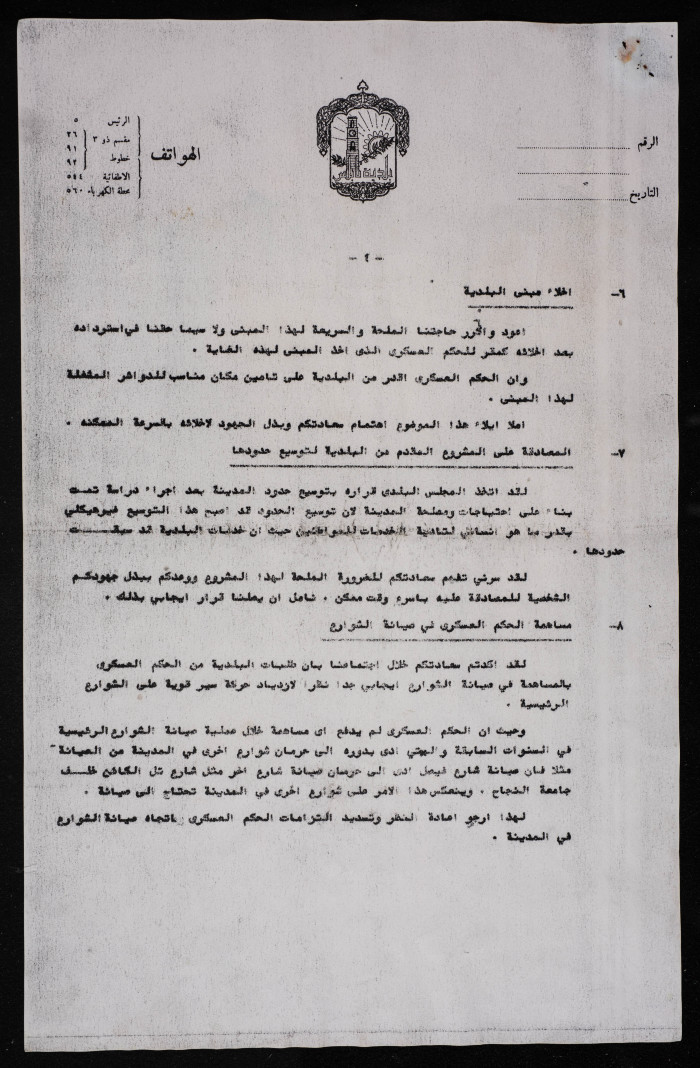 الرقم
التاريخ
بلدية نابلس
الهواتف
الرئيس ٥
مقسم ذو ٣ خطوط ٢٦ ٩١ ٩٢
الاطفائية ٥٤٤
محطة الكهرباء ٥٦٠
- ٤ -
٦- اخلاء مبنى البلدية
اعود واكرر حاجتنا الملحة والسريعة لهذا المبنى ولا سيما حقنا في استرداده
بعد اخلائه كمقر للحكم العسكرى الذى اخذ المبنى لهذه الغاية .
وان الحكم العسكرى اقدر من البلدية على تامين مكان مناسب للدوائر المشغلة
لهذا المبنى .
املا ايلاء هذا الموضوع اهتمام سعادتكم وبذل الجهود لاخلائه بالسرعة الممكنه .
٧- المصادقة على المشروع المقدم من البلدية لتوسيع حدودها
لقد اتخذ المجلس البلدى قراره بتوسيع حدود المدينة بعد اجراء دراسة تمت
بناء على احتياجات ومصلحة المدينة لان توسيع الحدود قد اصبح هذا التوسيع غيرهيكلي
بقدر ما هو انساني لتادية الخدمات للمواطنين حيث ان خدمات البلدية قد سبقت
حدودها .
لقد سرني تفهم سعادتكم للضرورة الملحة لهذا المشروع ووعدكم ببذل جهودكم
الشخصية للمصادقة عليه باسرع وقت ممكن . نامل ان يصلنا قرار ايجابي بذلك .
٨- مساهمة الحكم العسكرى في صيانة الشوارع
لقد اكدتم سعادتكم خلال اجتماعنا بان طلبات البلدية من الحكم العسكرى
بالمساهمة في صيانة الشوارع ايجابي جدا نظرا لازدياد حركة سير قوية على الشوارع
الرئيسية .
وحيث ان الحكم العسكرى لم يدفع اى مساهمة خلال عملية صيانة الشوارع الرئيسية
في السنوات السابقة و ادى بدوره الى حرمان شوارع اخرى في المدينة من الصيانة
مثلا فان صيانة شارع فيصل ادى الى حرمان صيانة شارع اخر مثل شارع تل الكاشن خلف
جامعة النجاح . وينعكس هذا الامر على شوارع اخرى في المدينة تحتاج الى صيانة .
لهذا ارجو اعادة النظر وتسديد التزامات الحكم العسكرى باتجاه صيانة الشوارع
في المدينة .